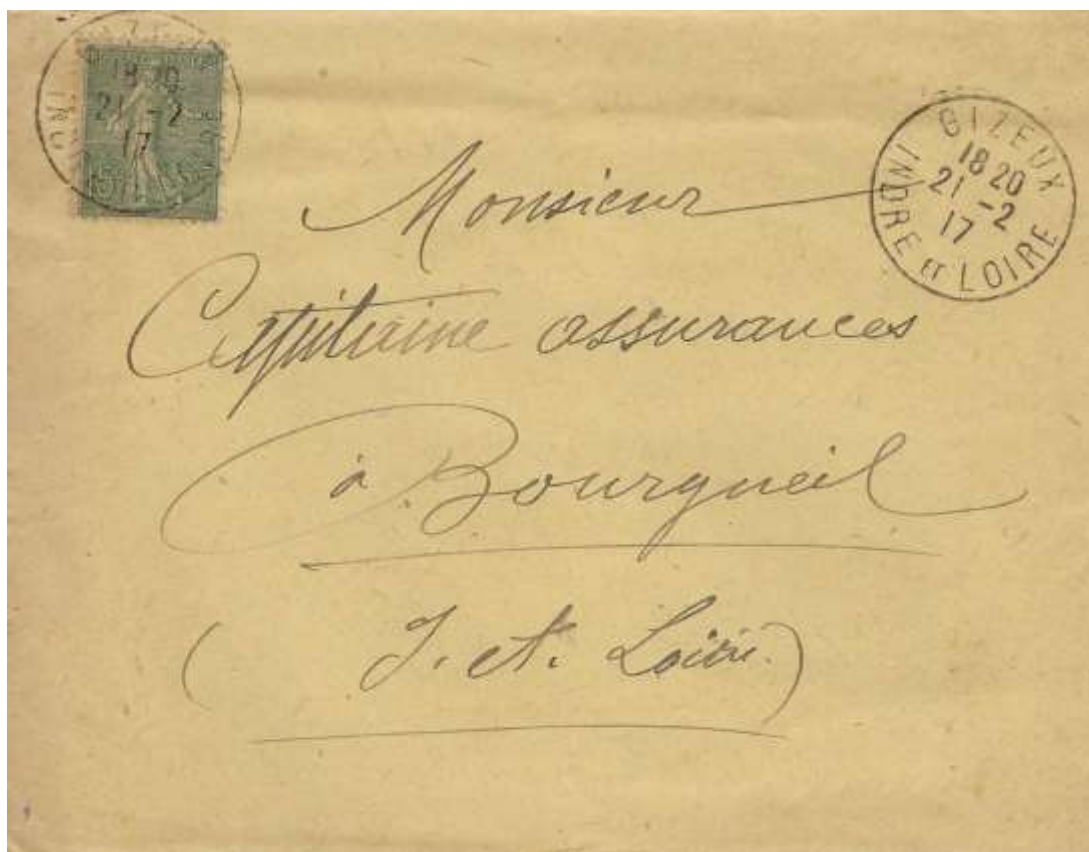 18 20
21 -2
17
15
GIZEUX
18 20
21 -2
17
INDRE ET LOIRE
Monsieur
Capitaine assurances
à Bourgueil
(I. et. Loire.)